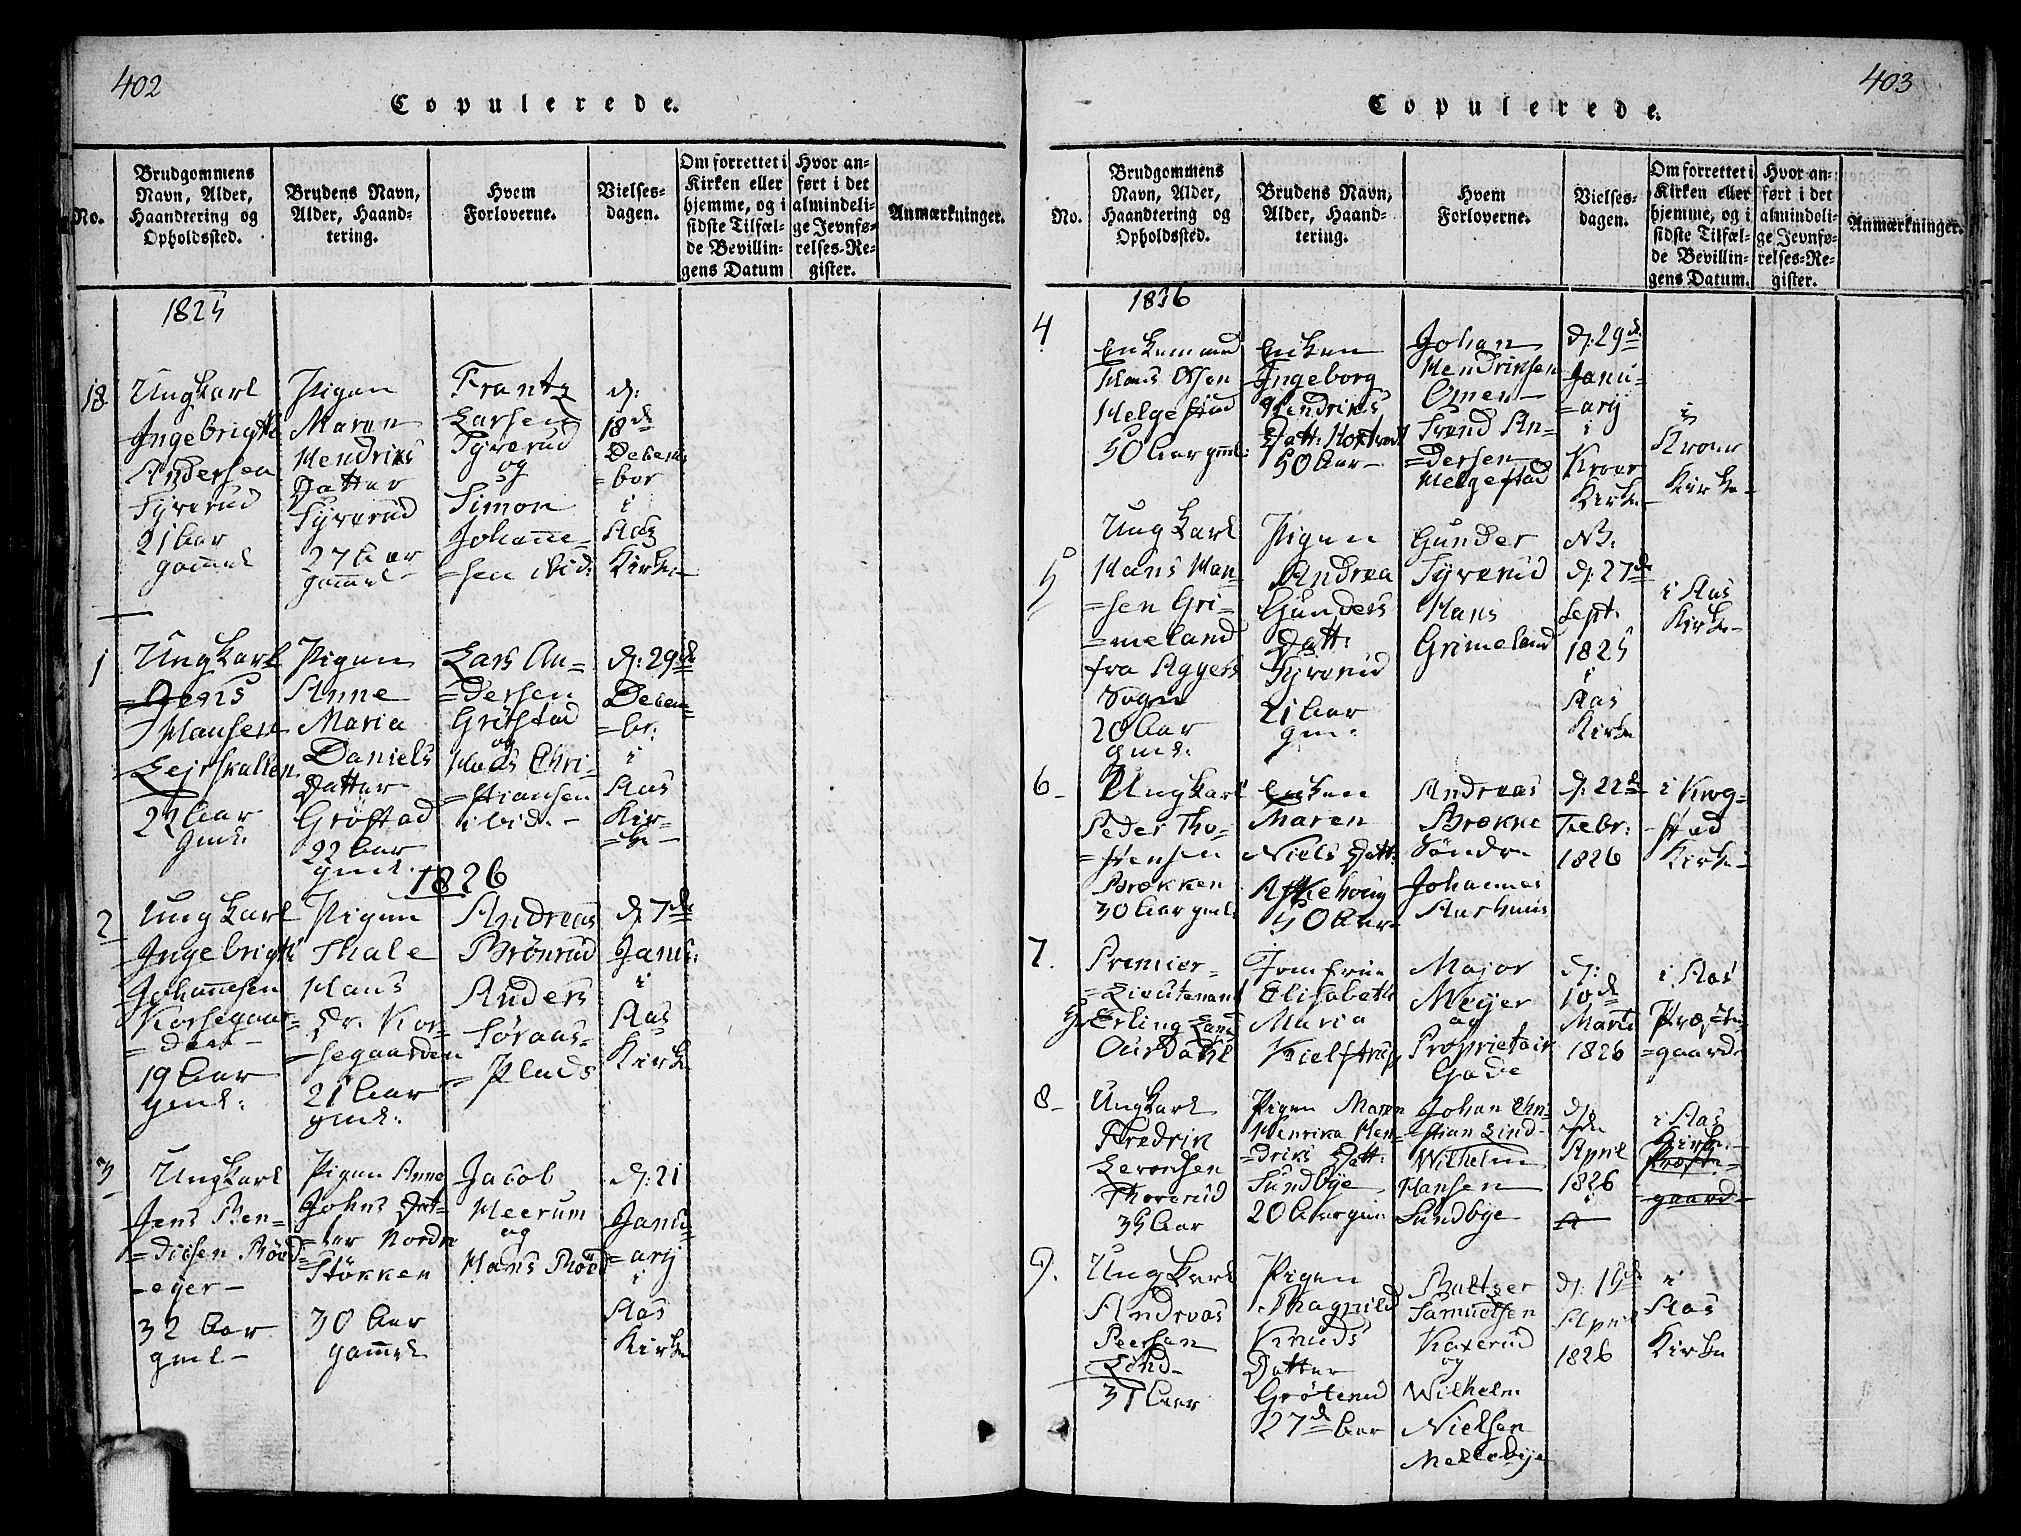 402
Copulerede.
No.
Brudgommens
Navn, Alder,
Haandtering og
Opholdssted.
Brudens Navn,
Alder, Haand-
tering.
Hvem
Forloverne.
Vielses-
dagen.
Om forrettet i
Kirken eller
hjemme, og i
sidste Tilfæl-
de Bevillin-
gens Datum
Hvor an-
ført i det
almindeli-
ge Jevnfø-
relses-Re-
gister.
Anmærkninger.
1825
18
Ungkarl
Ingebrigt
Andersen
Tyverud
21 Aar
gammel
Pigen
Maren
Hendriks
Datter
Tyverud
27 Aar
gammel
Frantz
Larsen
Tyverud
og
Simon
Johanne-
=sen ibid:
d:
18de
Decem
=ber
i
Aas
Kirke
1
Ungkarl
Jens
Hansen
Lejrskallen
22 Aar
gml:
Pigen
Anne
Maria
Daniels
Datter
Grøstad
22 Aar
gml.
Lars An-
=dersen
Grøstad
og
Mads Chri-
=stiansen
ibid. -
d: 29de
Decem-
=br:
i
Aas
Kir-
=ke
1826
2
Ungkarl
Ingebrigt
Johannesen
Korsegaar-
=den-
19 Aar
gml:
Pigen
Thale
Hans
Dr. Kor-
=segaarden
21 Aar
gml:
Andreas
Brønrud
Anders
Søraas-
=Plads
d: 7de
Janu:
i
Aas
Kirke
3
Ungkarl
Jens Ben-
=dixen Rød-
-eyer-
32 Aar
gml-
Pigen Anne
Johns Dat-
=ter Nordre
Støkken
30 Aar
gammel
Jacob
Heerum
og
Hans Røed
d: 21
Janu-
=arij
i
Aas
Kirke
403
Copulerede.
No.
Brudgommens
Navn, Alder,
Haandtering og
Opholdssted.
Brudens Navn,
Alder, Haand-
tering.
Hvem
Forloverne.
Vielses-
dagen.
Om forrettet i
Kirken eller
hjemme, og i
sidste Tilfæl-
de Bevillin-
gens Datum.
Hvor an-
ført i det
almindeli-
ge Jevnfø-
relses-Re-
gister.
Anmærkninger.
1826
4
Enkemand
Hans Olsen
Helgestad
50 Aar gml:
Enken
Ingeborg
Hendriks
Datt:
50 Aar-
Johan
Hendriksen
Trond An-
=dersen
Helgestad
d: 29de
Janu-
=arij
i
Kroer
Kirke-
i
Kroer
Kirke-
5
Ungkarl
Hans Han-
=sen Gri-
=meland
fra Aggers
Sogn
20 Aar
gml:
Pigen
Andrea
Gunders
Datt:
Tyverud
21 Aar
gm:
Gunder
Tyverud
Hans
Grimeland
NB:
d: 27de
Sept:
1825
i
Aas
Kirke
i Aas
Kirke-
6-
Ungkarl
Peder Tho-
Brekken
30 Aar gml:
Enken
Maren
Niels Datt:
50 Aar-
Andreas
Brekke
Søndre
Johannes
Aarhuus
d: 22de
Febr:
1826
i Krog-
-stad
Kirke-
7.
Premier-
=Lieutenant
Hr Erling
Ourdahl
Jomfrue
Elisabeth
Maria
Kielstrup
Major
Meyer
og
Proprietair
Gade
d:
10de
Marti
1826
i Aas
Præste-
=gaard-
8-
Ungkarl
Fredrik
Levorsen
Thorerud
35 Aar
Pigen Maren
Henrika Hen-
=driks Datt:
Sundbye
20 Aar gm
Johan Chri-
=stian Lind-
Wilhelm
Hansen
Sundbye
d:
April
1826
i
i Aas
Kirke-
Præste-
gaard-
9.
Ungkarl
Andreas
Peersen
Lind-
31 Aar
Pigen
Ragnild
Knuds
Datter
Grøterud
27de Aar
Baltzer
Samuelsen
Kaxerud
og
Wilhelm
Nielsen
Mellebye
d: 15de
April
1826
i
Aas
Kirke